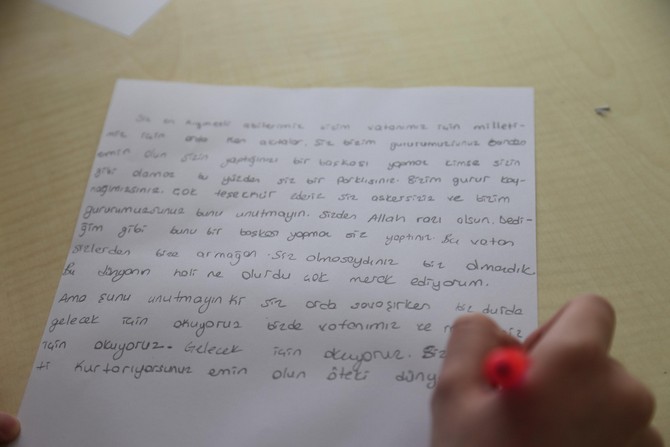 Siz en kıymetli abilerimiz bizim vatanımız için milleti-
miz için orda kan akıtılar. Siz bizim gururumuzsunuz bundan
emin olun sizin yaptığınızı bir başkası yapmaz kimse sizin
gibi olamaz bu yüzden siz bir farklısınız. Bizim gurur kay-
nağımızsınız. Çok teşekkür ederiz siz askersiniz ve bizim
gururumuzsunuz bunu unutmayın. Sizden Allah razı olsun. Dedi-
ğim gibi bunu bir başkası yapmaz siz yaptınız. Bu vatan
sizlerden bize armağan. Siz olmasaydınız biz olmazdık
bu dünyanın hali ne olurdu çok merak ediyorum.
Ama şunu unutmayın ki siz orda savaşırken biz burda
gelecek için okuyoruz bizde vatanımız ve
için okuyoruz. Gelecek için okuyoruz. Siz
ti kurtarıyorsunuz emin olun öteki düny